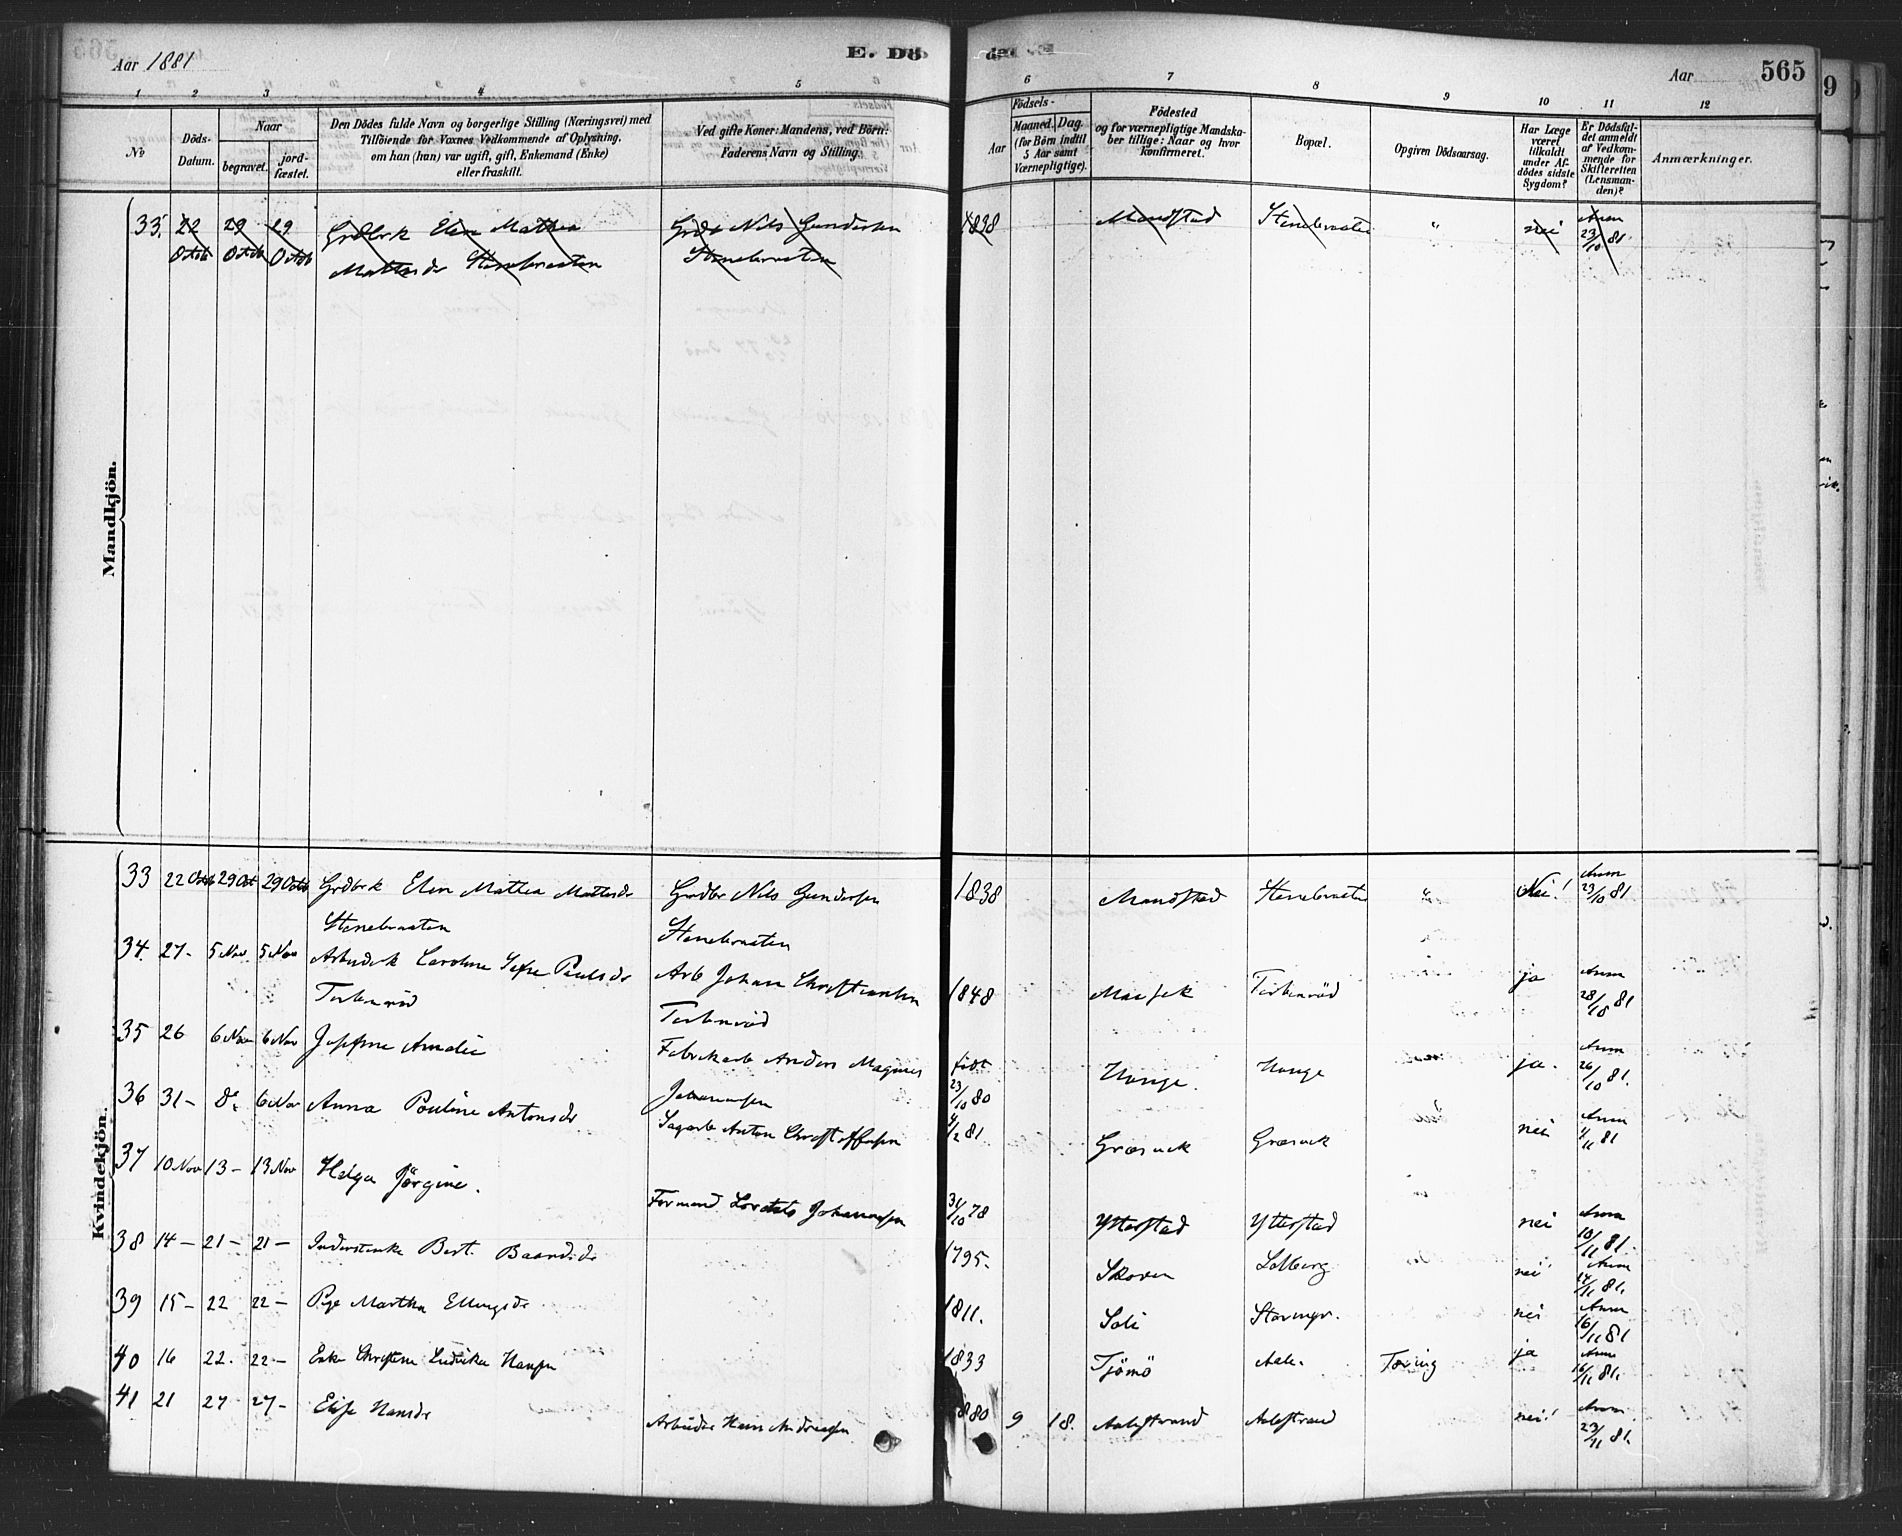 Aar 1881
E. Dö
de.
Aar
565
1 2 3 4 5 6 7 8 9 10 11 12
No
Döds-Datum.
Naar
begravet.
jord-fæstet.
Den Dödes fulde Navn og borgerlige Stilling (Næringsvei) med
Tilföiende for Voxnes Vedkommende af Oplysning,
om han (hun) var ugift, gift, Enkemand (Enke)
eller fraskilt.
Ved gifte Koner: Mandens, ved Börn:
Faderens Navn og Stilling.
Födsels-
Aar
Maaned. Dag.
(for Börn indtil
5 Aar samt
Værnepligtige).
Födested
og for værnepligtige Mandska-
ber tillige: Naar og hvor
konfirmeret.
Bopæl.
Opgiven Dödsaarsag.
Har Læge
været
tilkaldt
under Af-
dödes sidste
Sygdom?
Er Dödsfal-
det anmeldt
af Vedkom-
mende for
Skifteretten
(Lensman-
den)?
Anmærkninger.
Mandkjön.
33. 22 29 29 Grdbrk Elen Mathea Grdbr Nils Gundersen 1838 Mandstad Stenebraaten " nei Anm
Octob Octob Octob Mattisdr Stenebraaten Stenebraaten 23/10 81.
Kvindekjön.
33 22 Octb 29 Oct 29 Octb Grdbrk Elen Mathea Mattisdr Grdbr Nils Gundersen 1838 Mandstad Stenebraaten " Nei! Anm 23/10 81
Stenebraaten Stenebraaten
34. 27- 5 Nov 5 Nov Arbeiderk Caroline Paulsdr Arb Johan Christiansen 1848 ja Anm 28/10 81
35 26 6 Nov 6 Nov Josefine Amalie Fabrikarb Anders Magnus født 23/10 80 Hauge. Hauge ja. Anm 26/10 81.
Johannesen
36 31- Do 6 Nov Anna Pauline Antonsdr Sagarb Anton Christoffersen 4/2 81. Græsvik Græsvik nei Anm 4/11 81
37 10 Nov 13- 13 Nov Helga Jørgine. Formand Johannesen 31/10 78 Ytterstad Ytterstad nei Anm 10/11 81.
38 14- 21- 21- Inderstenke Baardsdr 1795. Skoven nei Anm 14/11 81.
39 15- 22 22- Pige Martha Ellingsdr 1811. Soli nei Anm 16/11 81
40 16 22. 22- Enke Christine Hansen 1833 Tjömö Aale. Tæring ja Anm 16/11 81.
41 21 27 27- Elise Hansdr Arbeider Hans Andreasen 1880 9 18. Aalestrand Aalestrand nei! Anm 23/11 81.